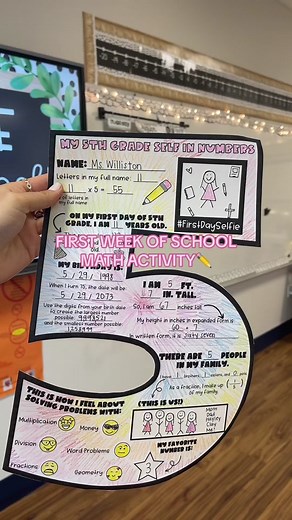 MY 5TH GRADE SELF IN NUMBERS
NAME: Ms. Williston
Letters in my full name: 11
11 x 5 = 55
# of letters in
my full name
#FirstDaySelfie
ON MY FIRST DAY OF 5TH
GRADE, I AM 11 YEARS OLD.
FIRST WEEK OF SCHOOL
MATH ACTIVITY
MY BIRTHDAY IS:
5 / 29 / 1998
When I turn 75, the date will be:
5 / 29 / 2073
Use the digits from your birth date
to create the largest number
possible:
and the smallest number possible:
I AM 5 FT.
7 IN. TALL.
So, I am 67 inches tall.
My height in inches in expanded form is
60 + 7
In written form, it is sixty seven
THERE ARE 5 PEOPLE
IN MY FAMILY.
As a fraction, I make up
of my family.
(THIS IS US!)
Mom
Dad
Hayley
Clay
Me!
THIS IS HOW I FEEL ABOUT
SOLVING PROBLEMS WITH:
Multiplication
Money
Division
Word Problems
Fractions
Geometry
MY FAVORITE
NUMBER IS:
3